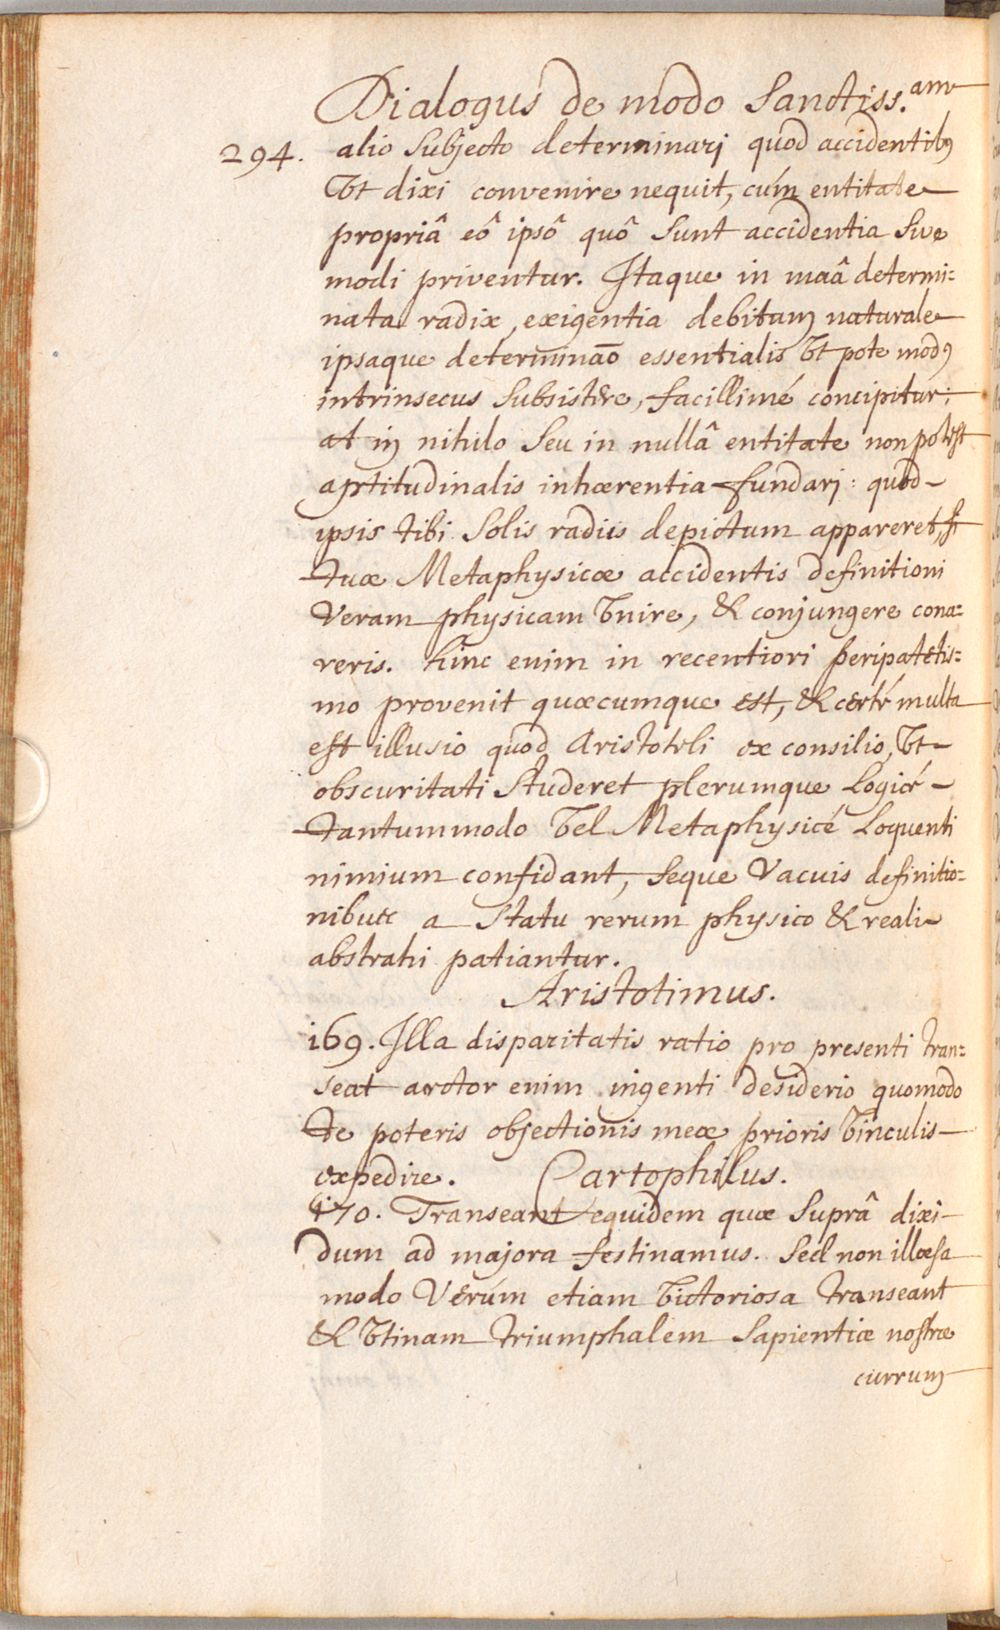 Dialogus de modo Sanctiss.am
294. alio Subjecto determinari quod accidentibꝰ
Ut dixi convenire nequit, cúm entitate
propriâ eô ipsô quô Sunt accidentia Sive
modi priventur. Itaque in maâ determi=
nata radix, exigentia debitum naturale
ipsaque determinaõ essentialis Ut pote modꝰ
intrinsecus Subsistere, facillimé concipitur;
at in nihilo Seu in nullâ entitate non potest
aptitudinalis inhærentia fundari: quod
ipsis tibi Solis radiis depictum appareret, si
tuæ Metaphysicæ accidentis definitioni
Veram physicam Unire, & conjungere cona=
reris. hinc enim in recentiori peripatetis=
mo provenit quæcumque est, & certé multa
est illusio quod Aristoteli ex consilio, Ut
obscuritati Studeret plerumque Logicé
tantummodo Vel Metaphysicé Loquenti
nimium confidant, Seque Vacuis definitio=
nibus a Statu rerum physico & reali
abstrahi patiantur.
Aristotimus.
169. Illa disparitatis ratio pro presenti tran=
seat arctor enim ingenti desiderio quomodo
te poteris objectionis meæ prioris Vinculis
expedire. Cartophilus.
170. Transeant equidem quæ Suprâ dixi
dum ad majora festinamus. Sed non illæsa
modo Verúm etiam Victoriosa transeant
& Utinam triumphalem Sapientiæ nostræ
currum